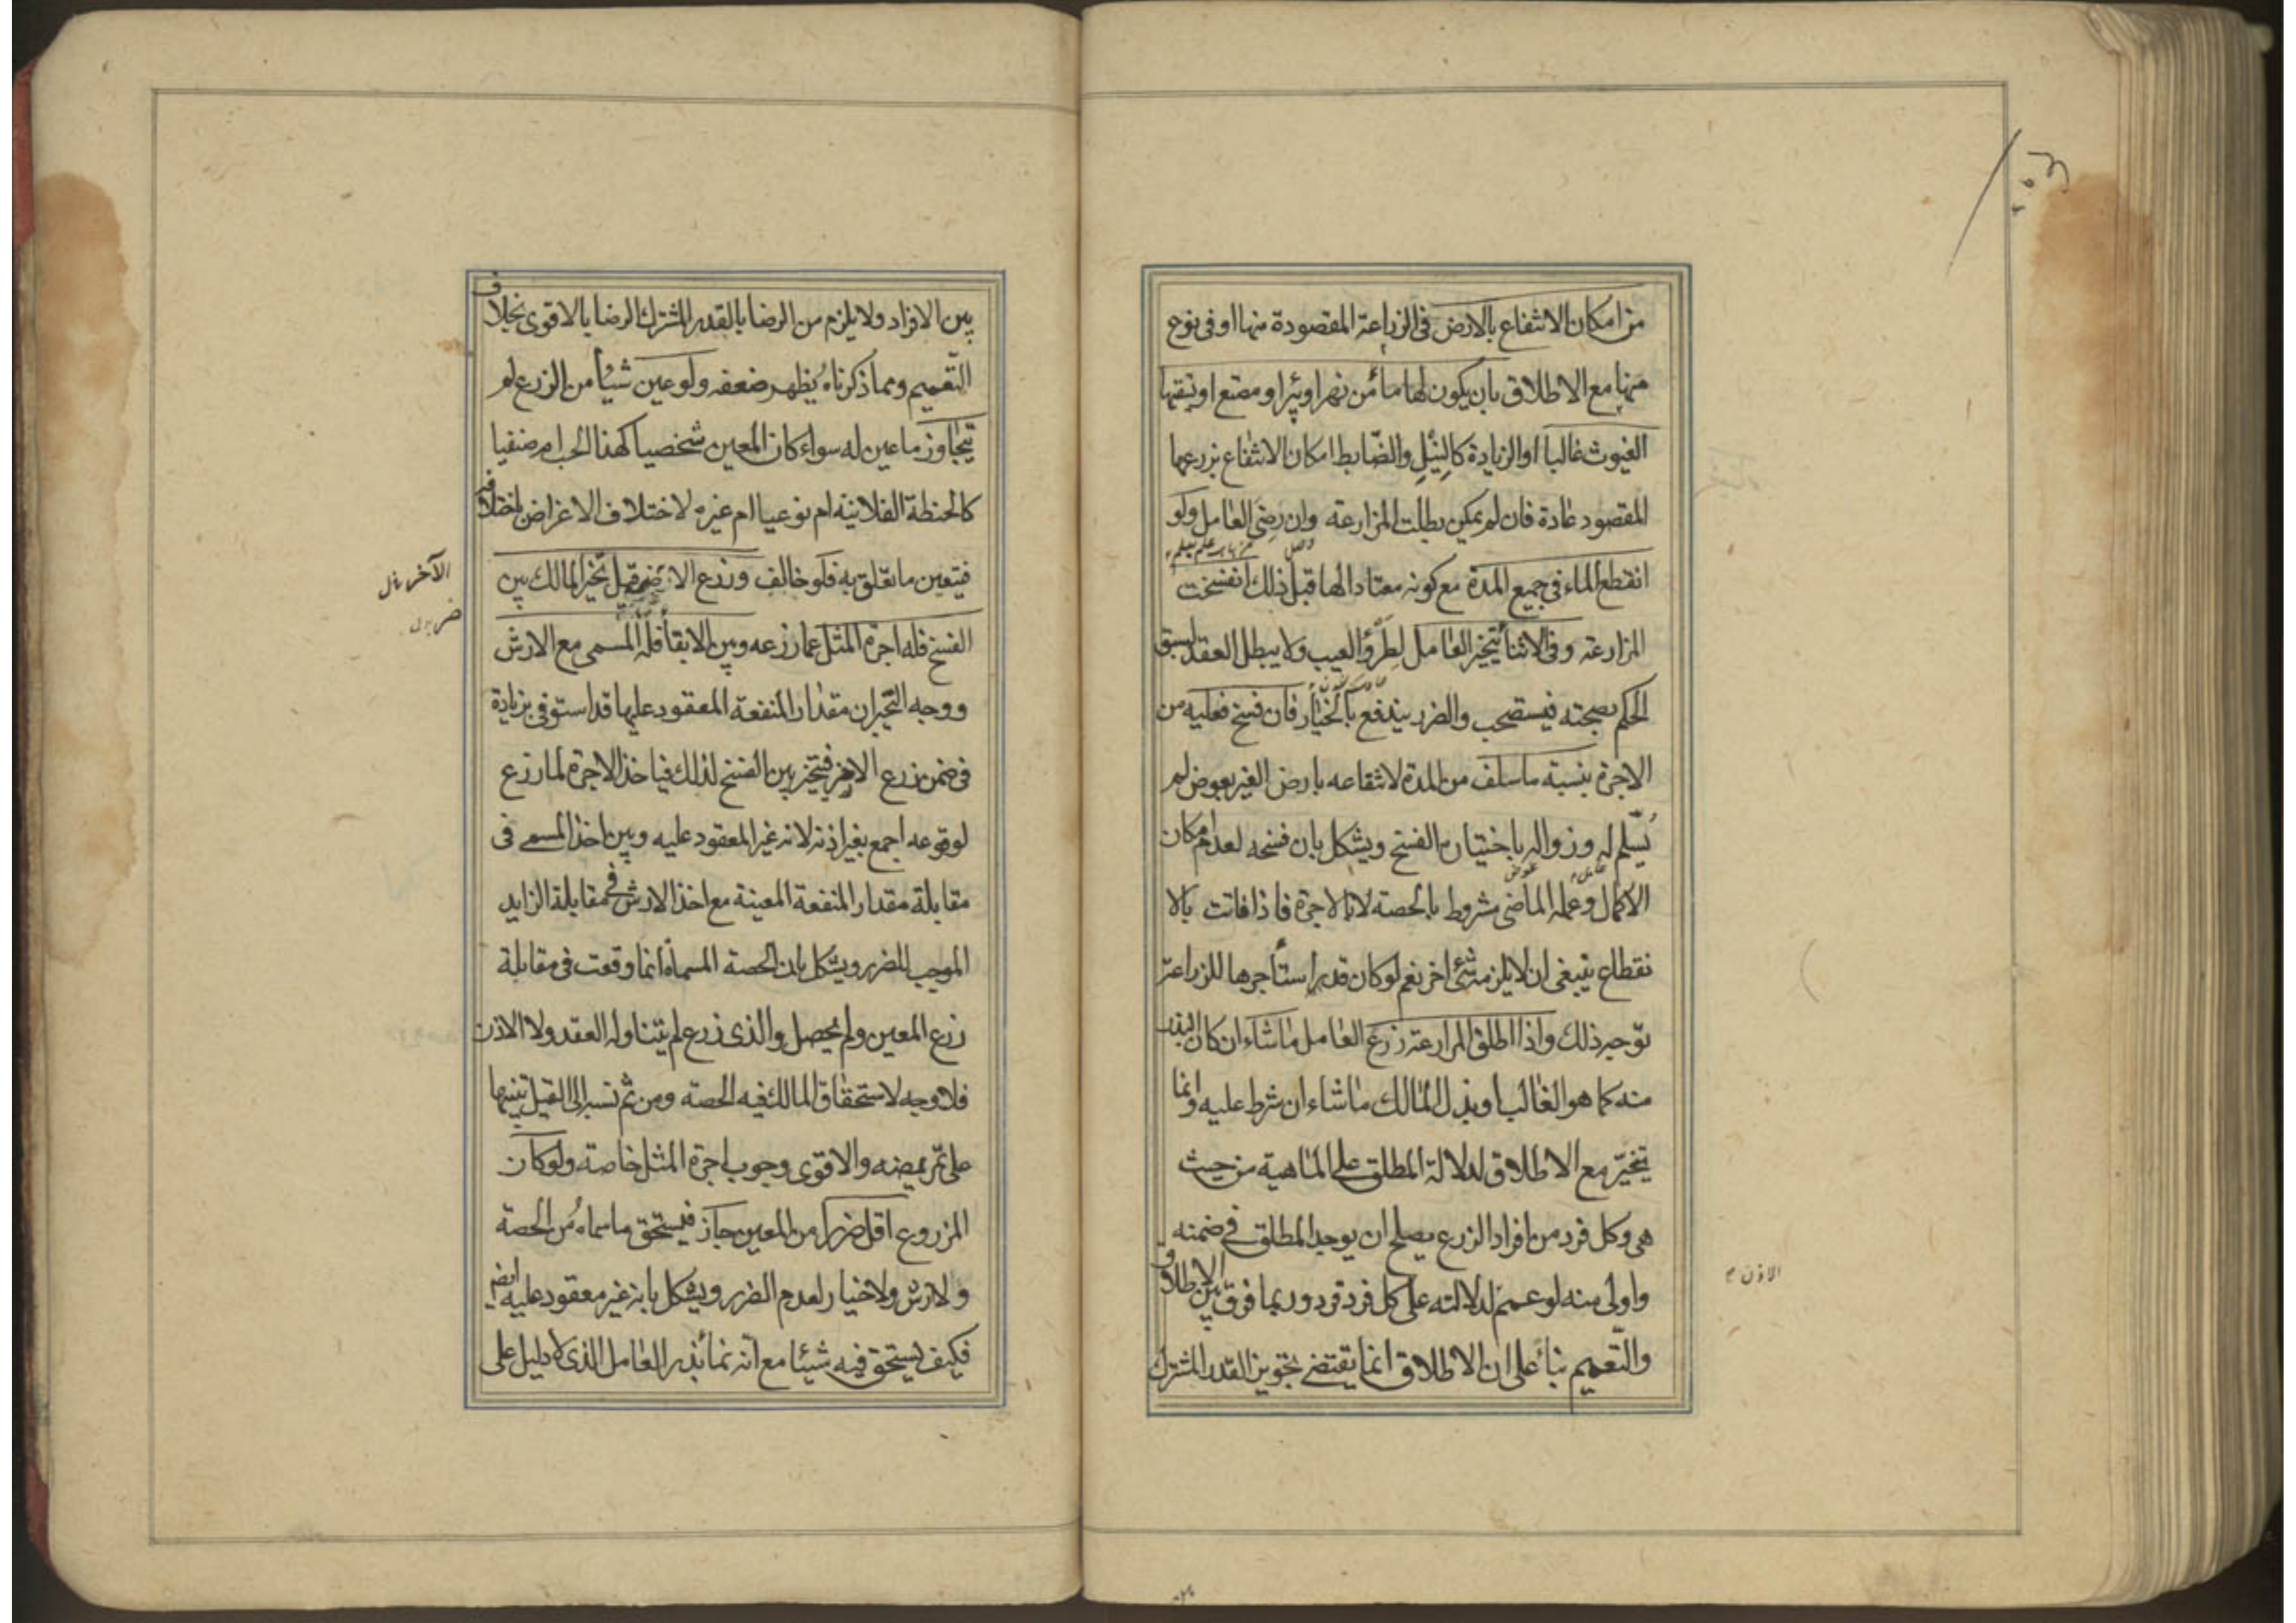 من امكان الانتفاع بالارض فى الزراعة المقصودة منها او فى نوع
منها مع الاطلاق بان يكون لها ماء من نهر او بئر او مصنع او تسقيها
الغيوث غالبا او الزيادة كالنيل والضابط امكان الانتفاع بزرعها
المقصود عادة فان لم يمكن بطلت المزارعة وان رضى العامل ولو
انقطع الماء فى جميع المدة مع كونه معتادا لها قبل ذلك انفسخت
المزارعة وفى الاثناء يتخير العامل لطرؤ العيب ولا يبطل العقد لسبق
الحكم بصحته فيستصحب والضرر يندفع بالخيار فان فسخ فعليه من
الاجرة بنسبة ما سلف من المدة لانتفاعه بارض الغير بعوض لم
يسلم له وزواله باختياره الفسخ ويشكل بان فسخه لعدم امكان
الاكمال وعمله الماضى مشروط بالحصة لا بالاجرة فاذا فاتت بالا
نقطاع ينبغى ان لا يلزمه شئ اخر نعم لو كان قد استأجرها للزراعة
توجه ذلك واذا اطلق المزارعة زرع العامل ما شاء ان كان البذر
منه كما هو الغالب او بذل المالك ما شاء ان شرط عليه وانما
تخير مع الاطلاق لدلالة المطلق على الماهية من حيث
هى وكل فرد من افراد الزرع يصلح ان يوجد المطلق فى ضمنه
واولى منه لو عمم لدلالته على كل فرد فرد وربما فرق بين الاطلاق و
الاذن
والتعميم بناء على ان الاطلاق انما يقتضى تجويز القدر المشترك
بين الافراد ولا يلزم من الرضا بالقدر المشترك الرضا بالاقوى بخلاف
التعميم ومما ذكرناه يظهر ضعفه ولو عين شيئا من الزرع لم
يتجاوز ما عين له سواء كان المعين شخصيا كهذا الحب ام صنفيا
كالحنطة الفلانية ام نوعيا ام غيره لاختلاف الاغراض باختلافه
فيتعين ما تعلق به فلو خالف وزرع الاضر قيل تخير المالك بين
الآخر
الفسخ فله اجرة المثل عما زرعه وبين الابقاء فله المسمى مع الارش
ووجه التخير ان مقدار المنفعة المعقود عليها قد استوفى بزيادة
فى ضمن زرع الاضر فيتخير بين الفسخ لذلك فياخذ الاجرة لما زرع
لوقوعه اجمع بغير اذنه لانه غير المعقود عليه وبين اخذ المسمى فى
مقابلة مقدار المنفعة المعينة مع اخذ الارش فى مقابلة الزايد
الموجب للضرر ويشكل بان الحصة المسماة انما وقعت فى مقابلة
زرع المعين ولم يحصل والذى زرع لم يتناوله العقد ولا الاذن
فلا وجه لاستحقاق المالك فيه الحصة ومن ثم نسبه الى القيل تنبيها
على تمريضه والاقوى وجوب اجرة المثل خاصة ولو كان
المزروع اقل ضررا من المعين جاز فيستحق ما سماه من الحصة
ولا ارش ولا خيار لعدم الضرر ويشكل بانه غير معقود عليه ايضا
فكيف يستحق فيه شيئا مع انه نماء بذر العامل الذى لا دليل على